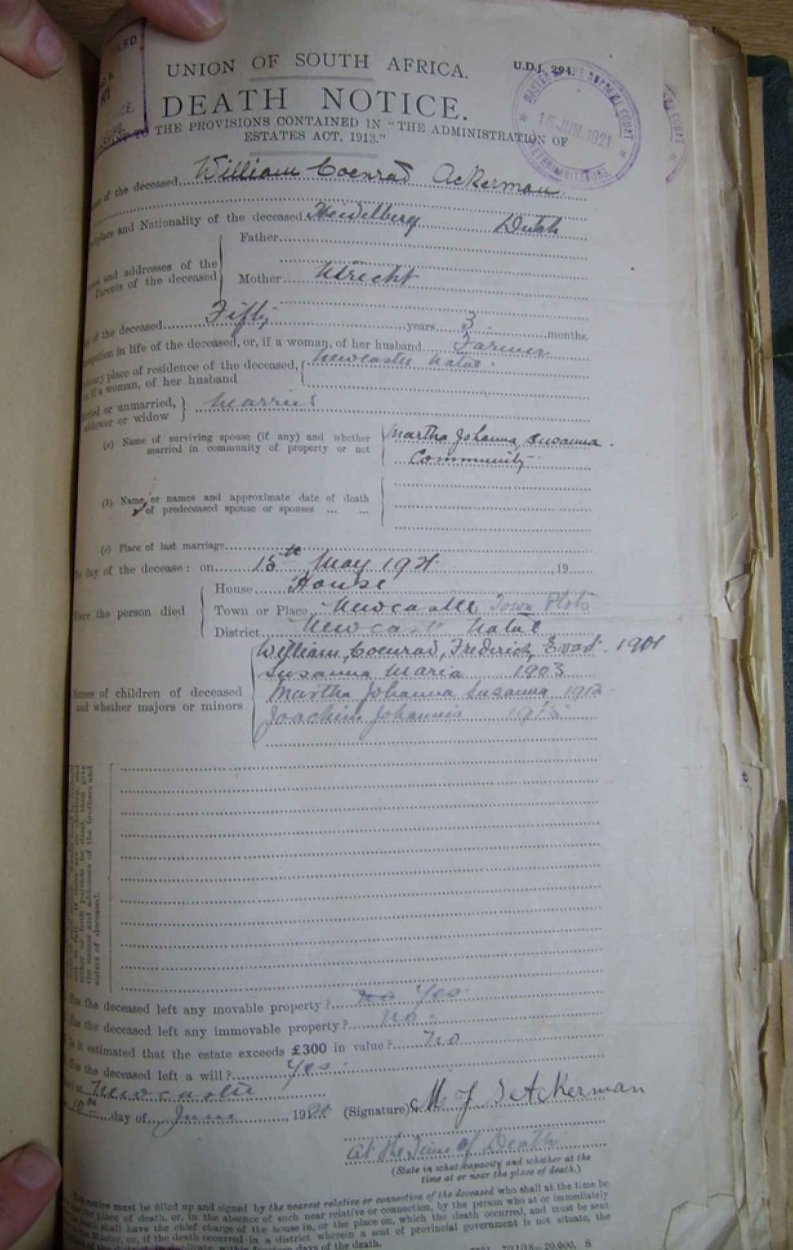 UNION OF SOUTH AFRICA.
U.D.J. 294.
DEATH NOTICE.
THE PROVISIONS CONTAINED IN "THE ADMINISTRATION OF
ESTATES ACT, 1913."
SUPREME COURT
15 JUN 1921
of the deceased William Coenrad Ackerman
and Nationality of the deceased Heidelberg Dutch
Father
and addresses of the
Parents of the deceased
Mother Utrecht
of the deceased Fifty years 3 months.
in life of the deceased, or, if a woman, of her husband Farmer
place of residence of the deceased, Newcastle Natal
if a woman, of her husband
or unmarried, Married
or widow
(a) Name of surviving spouse (if any) and whether Martha Johanna Susanna.
married in community of property or not Community
(b) Name or names and approximate date of death
of predeceased spouse or spouses ... ...
(c) Place of last marriage
day of the decease: on 15th May 1921 , 19
House House
the person died Town or Place Newcastle Town Plots
District Newcastle Natal
William Coenrad, Frederick, 1901
Susanna Maria 1903
Names of children of deceased Martha Johanna Susanna 1912
and whether majors or minors Joachim Johannis
the names and addresses of the brothers and
sisters of deceased.
Has the deceased left any movable property? no Yes
Has the deceased left any immovable property? no.
Is it estimated that the estate exceeds £300 in value? No
Has the deceased left a will? Yes.
at Newcastle
10th day of June , 1921 (Signature) M J S Ackerman
At the Time of Death
(State in what capacity and whether at the
time at or near the place of death.)
This notice must be filled up and signed by the nearest relative or connection of the deceased who shall at the time be
the place of death, or, in the absence of such near relative or connection, by the person who at or immediately
death shall have the chief charge of the house in, or the place on, which the death occurred, and must be sent
Master, or, if the death occurred in a district wherein a seat of provincial government is not situate, the
days of the death.